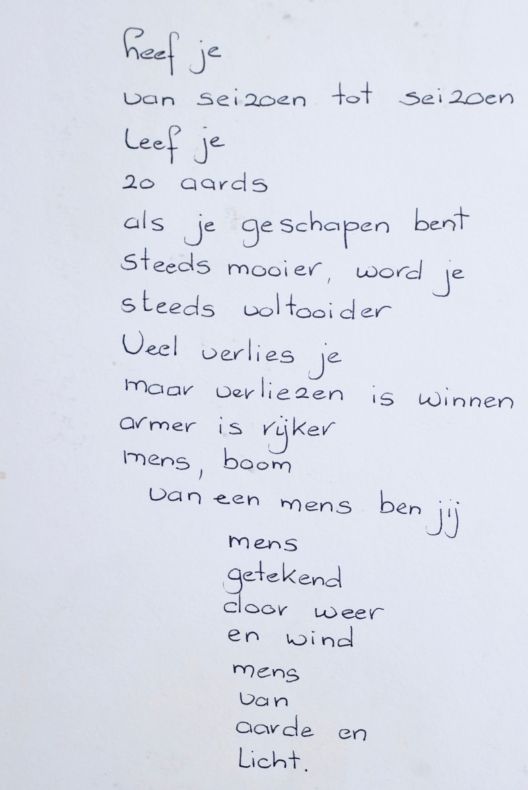 heef je
van seizoen tot seizoen
Leef je
zo aards
als je geschapen bent
steeds mooier, word je
steeds voltooider
Veel verlies je
maar verliezen is winnen
armer is rijker
mens, boom
van een mens ben jij
mens
getekend
door weer
en wind
mens
van
aarde en
Licht.